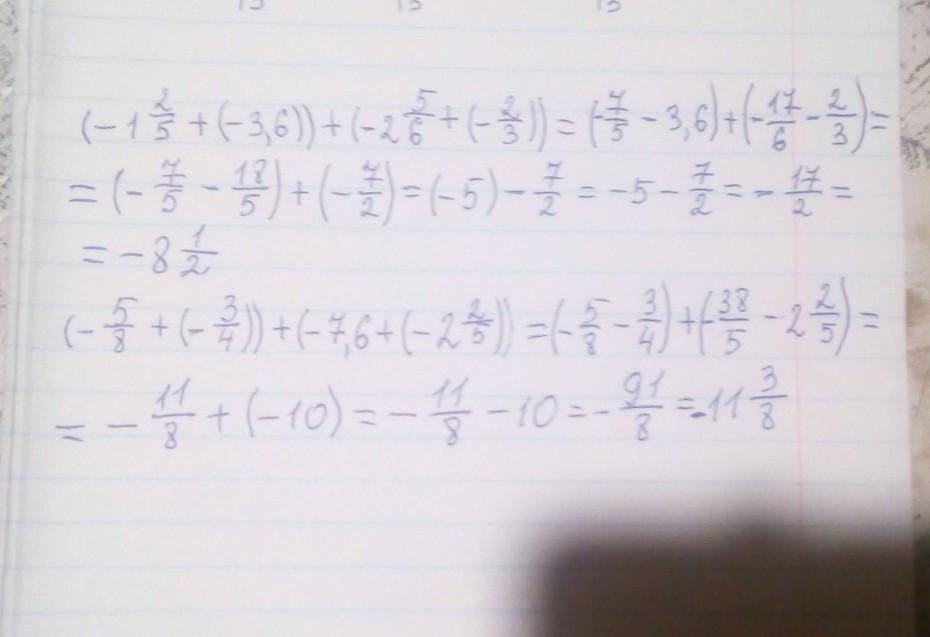 (-1 2/5 + (-3,6)) + (-2 5/6 + (- 2/3)) = (- 7/5 - 3,6) + (- 17/6 - 2/3) =
= (- 7/5 - 18/5) + (- 7/2) = (-5) - 7/2 = -5 - 7/2 = - 17/2 =
= -8 1/2
(- 5/8 + (- 3/4)) + (-7,6 + (-2 2/5)) = (- 5/8 - 3/4) + (- 38/5 - 2 2/5) =
= - 11/8 + (-10) = - 11/8 - 10 = - 91/8 = -11 3/8